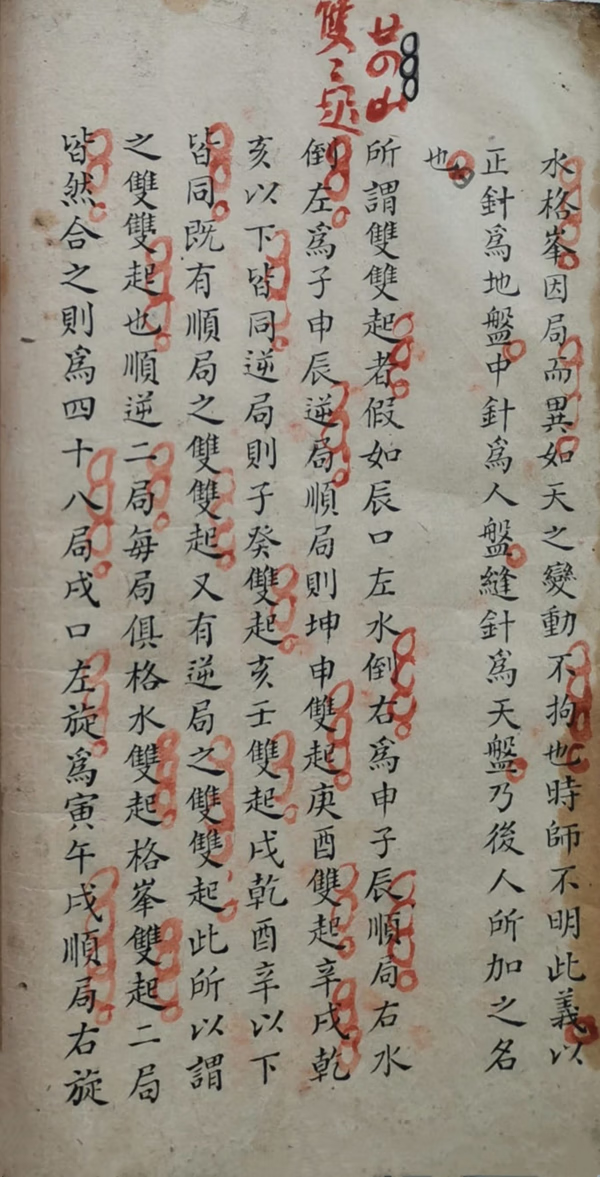 廿四山
雙〻起
水格峯因局而異如天之變動不拘也時師不明此義以
正針爲地盤中針爲人盤縫針爲天盤乃後人所加之名
也
所謂雙雙起者假如辰口左水倒右爲申子辰順局右水
倒左爲子申辰逆局順局則坤申雙起庚酉雙起辛戌乾
亥以下皆同逆局則子癸雙起亥壬雙起戌乾酉辛以下
皆同既有順局之雙雙起又有逆局之雙雙起此所以謂
之雙雙起也順逆二局每局俱格水雙起格峯雙起二局
皆然合之則爲四十八局戌口左旋爲寅午戌順局右旋